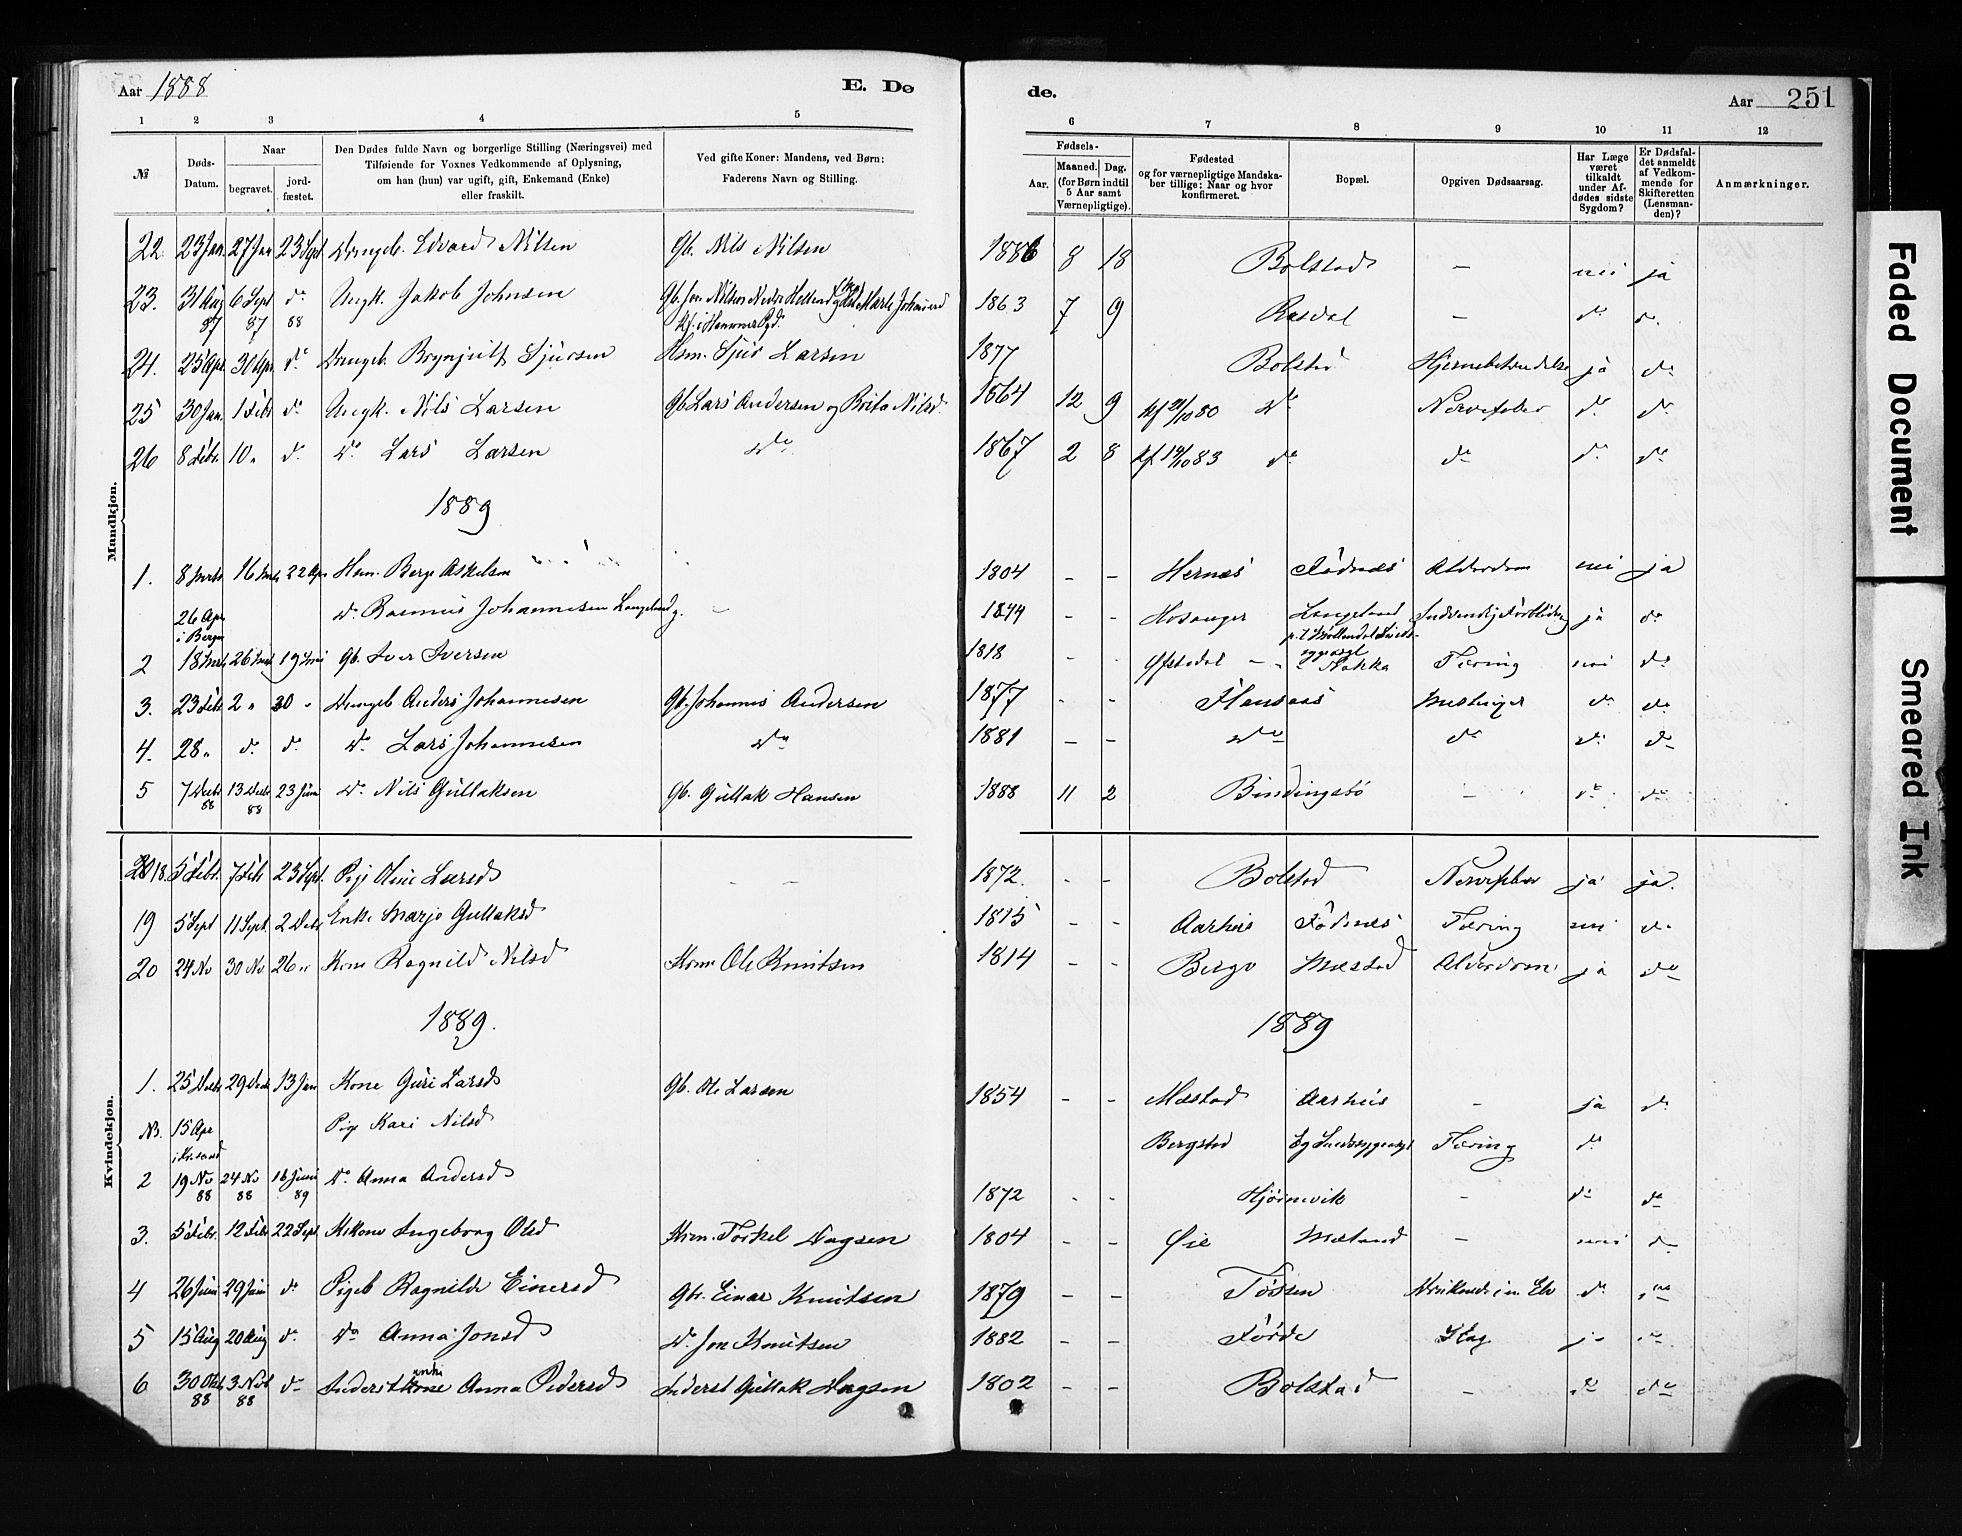 Aar 1888 E. Dø de. Aar 251
1 2 3 4 5 6 7 8 9 10 11 12
№
Døds-Datum.
Naar
begravet.
jordfæstet.
Den Dødes fulde Navn og borgerlige Stilling (Næringsvei) med
Tilføiende for Voxnes Vedkommende af Oplysning,
om han (hun) var ugift, gift, Enkemand (Enke)
eller fraskilt.
Ved gifte Koner: Mandens, ved Børn:
Faderens Navn og Stilling.
Fødsels-
Aar.
Maaned. Dag.
(for Børn indtil
5 Aar samt
Værnepligtige).
Fødested
og for værnepligtige Mandska-
ber tillige: Naar og hvor
konfirmeret.
Bopæl.
Opgiven Dødsaarsag.
Har Læge
været
tilkaldt
under Af-
dødes sidste
Sygdom?
Er Dødsfal-
det anmeldt
af Vedkom-
mende for
Skifteretten
(Lensman-
den)?
Anmærkninger.
Mandkjøn.
22 23 Jan. 27 Jan 23 Sept Drengeb. Edvard Nilsen Gb. Nils Nilsen 1886 8 18 Bolstad – nei ja
23. 31 Aug 87 6 Sept 87 do 88 Ungk. Jakob Johnsen 1863 7 9 Rasdal – do do
24. 25 Apr 30 Apr. do Drengeb. Brynjulf Sjursen Hsm. Sjur Larsen 1877 Bolstad Hjernebetændelse ja do
25 30 Jan. 1 Febr do Ungk. Nils Larsen Gb Lars Andersen og Brita Nilsd. 1864 12 9 do Nervefeber do do
26 8 Febr. 10 „ do do Lars Larsen do 1867 2 8 do do do do
1889
1. 8 Marts 16 Mrts 22 Apr Hsm. Berge Askelsen 1804 – – Hernes Fødnes Alderdom nei ja
26 Apr i Bergen do Rasmus Johannesen Langeland – 1844 – – Hosanger Langeland ja do
2 18 Mrts 26 Mrts 19 Mai Gb. Iver Iversen 1818 – – Tæring nei do
3. 23 Febr 2 „ 30 „ Drengeb Anders Johannesen Gb. Johannes Andersen 1877 – – Meslinger do do
4. 28 „ do do do Lars Johannesen do 1881 – – do do do do
5 7 Decbr 88 13 Decbr 88 23 Juni do Nils Gullaksen Gb. Gullak Hansen 1888 11 2 Bindingsbø – do do
Kvindekjøn.
18. 5 Febr. 7 Febr 23 Sept. Pige Larsd – – 1872. – – Bolstad Nervefeber ja ja.
19 5 Sept 11 Sept 2 Decbr Enke Marjo Gullaksd 1815 – – Aarhus Fødnes Tæring nei do
20 24 No 30 No 26 „ Kone Ragnild Nilsd Hsm. Ole Knutsen 1814 – – Berge Mestad Alderdom ja do
1889. 1889
1. 25 Decbr 29 Decbr 13 Jan Kone Guri Larsd Gb. Ole Larsen 1854 – – Mestad Aarhus – ja do
15 Apr Pige Kari Nilsd Bergstad Tæring do
2 19 No 88 24 No 88 16 Juni 89 do Anna Andersd 1872 – – Hjørnevik – do do
3. 5 Febr. 12 Febr 22 Sept Ingeborg Olsd Torkel Dagsen 1804 – – Øie Mestad – nei do
4 26 Juni 29 Juni do Pigeb Ragnilde Einersd Gb. Einar Knutsen 1879 – – Tøssen do do
5 15 Aug 20 Aug do do Anna Jonsd do Jon Knutsen 1882 – – Førde Slag ja do
6 30 Okt 88 3 Nov 88 do Inderstkone enke Anna Pedersd Inderst Gullak 1802 – – Bolstad – do do
Faded Document
Smeared Ink